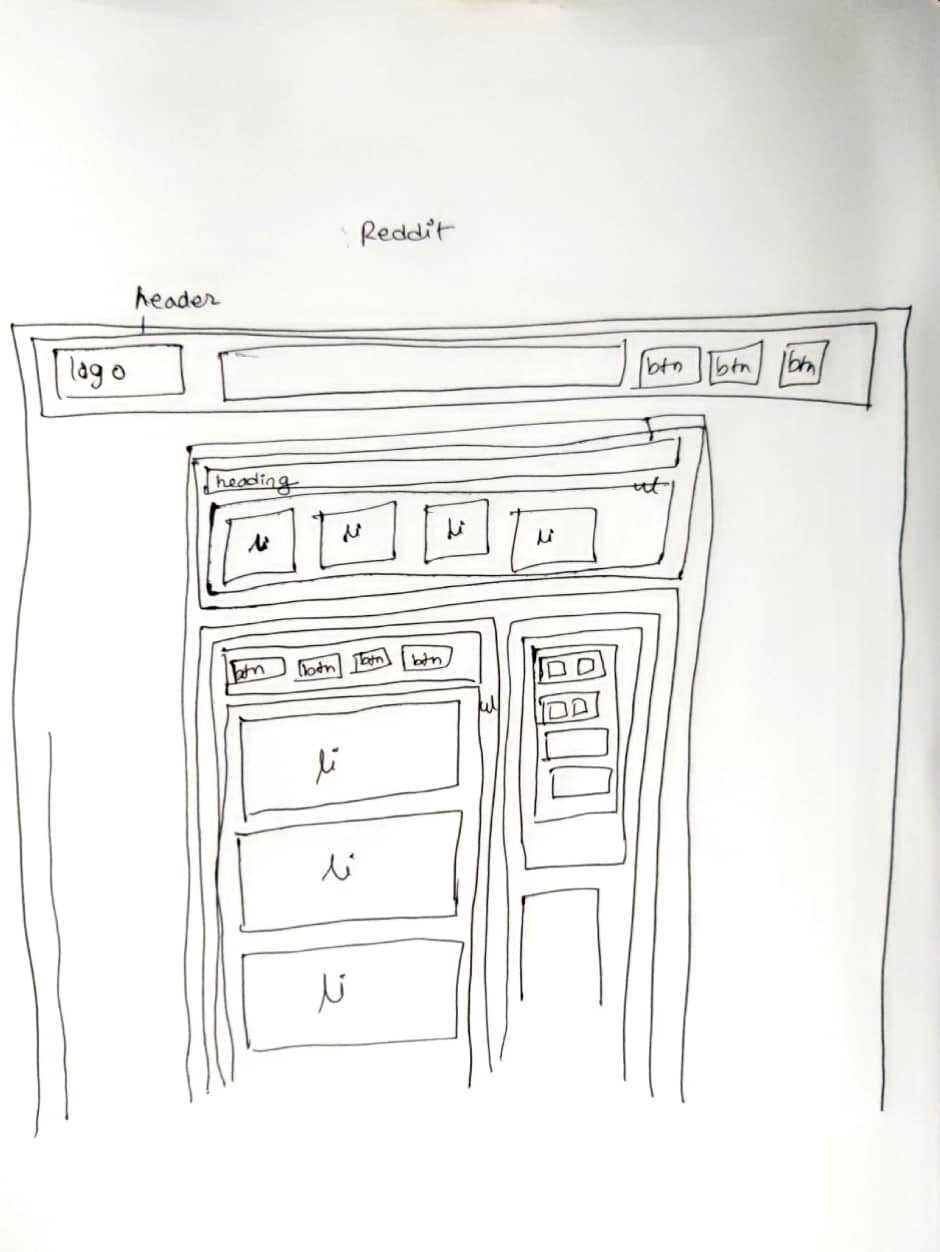 Reddit
header
logo btn btn btn
heading
ul
li li li li
btn btn btn btn
ul
li
li
li